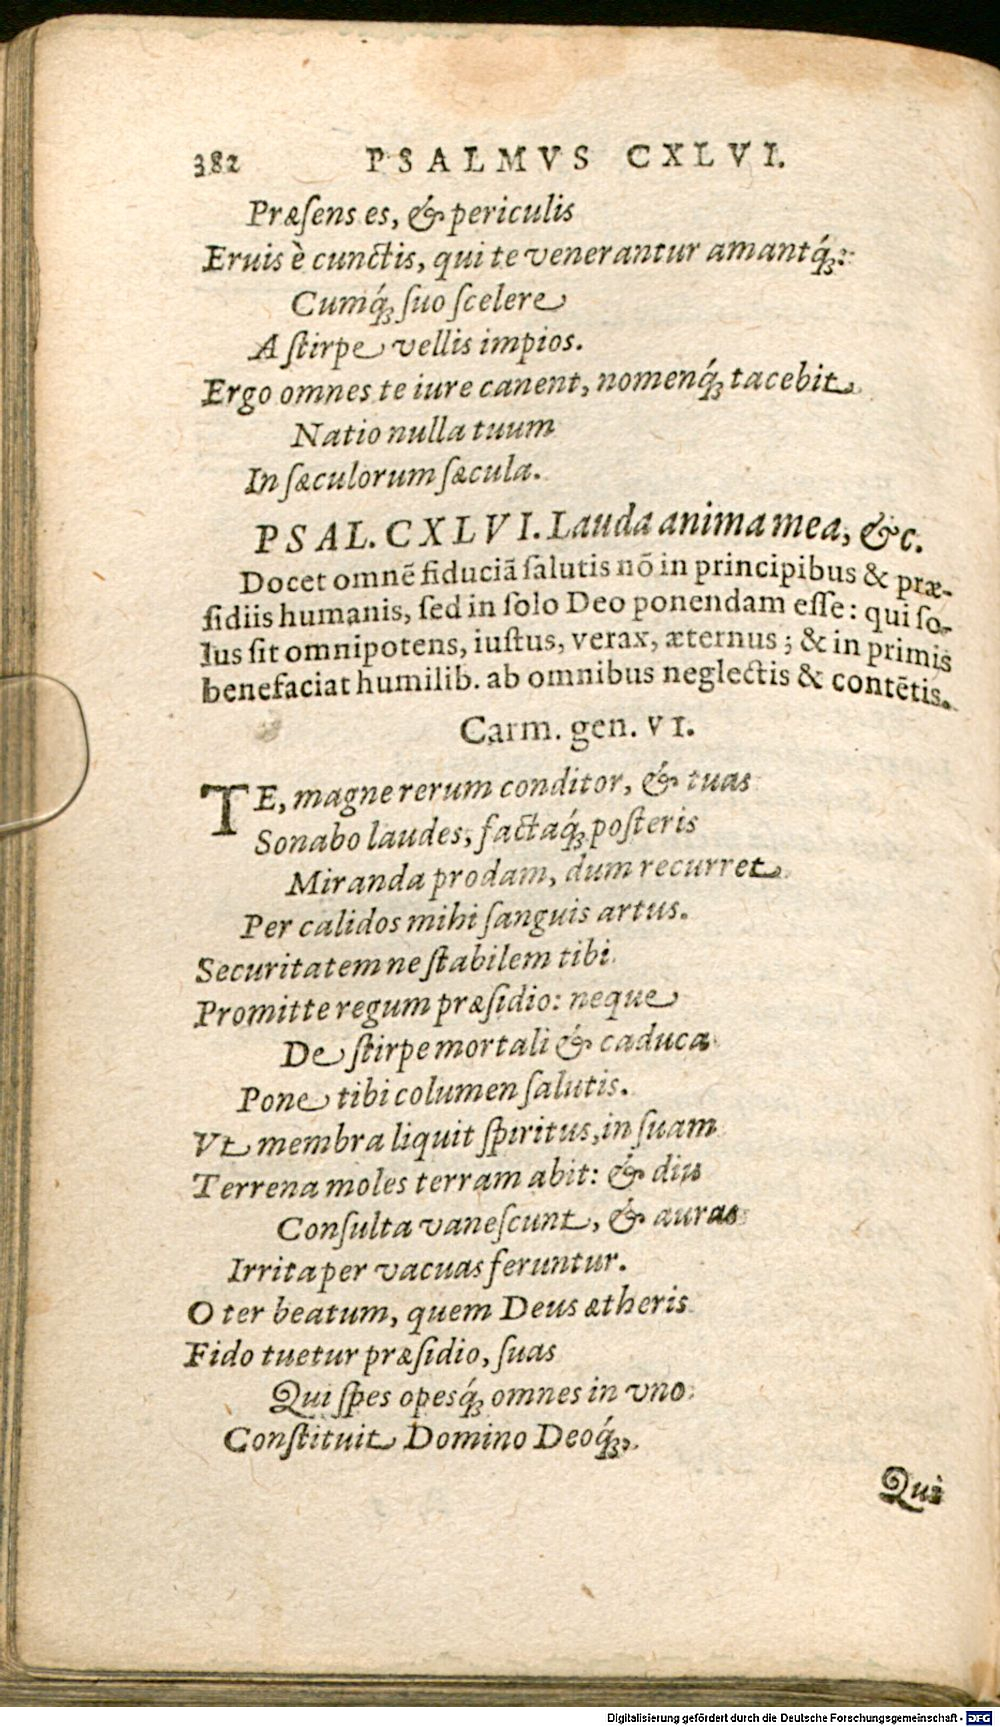 382 PSALMVS CXLVI.
Præſens es, & periculis
Eruis è cunctis, qui te venerantur amantq́ꝫ:
Cumq́ꝫ ſuo ſcelere
A ſtirpe vellis impios.
Ergo omnes te iure canent, nomenq́ꝫ tacebit
Natio nulla tuum
In ſæculorum ſæcula.
PSAL. CXLVI. Lauda anima mea, &c.
Docet omnē fiduciā ſalutis nō in principibus & præ-
ſidiis humanis, ſed in ſolo Deo ponendam eſſe: qui ſo-
lus ſit omnipotens, iuſtus, verax, æternus; & in primis
benefaciat humilib. ab omnibus neglectis & contētis.
Carm. gen. VI.
TE, magne rerum conditor, & tuas
Sonabo laudes, factaq́ꝫ poſteris
Miranda prodam, dum recurret
Per calidos mihi ſanguis artus.
Securitatem ne ſtabilem tibi
Promitte regum præſidio: neque
De ſtirpe mortali & caduca
Pone tibi columen ſalutis.
Vt membra liquit ſpiritus, in ſuam
Terrena moles terram abit: & diu
Conſulta vaneſcunt, & auras
Irrita per vacuas feruntur.
O ter beatum, quem Deus ætheris
Fido tuetur præſidio, ſuas
Qui ſpes opesq́ꝫ omnes in vno
Conſtituit Domino Deoq́ꝫ,
Qui
Digitalisierung gefördert durch die Deutsche Forschungsgemeinschaft - DFG